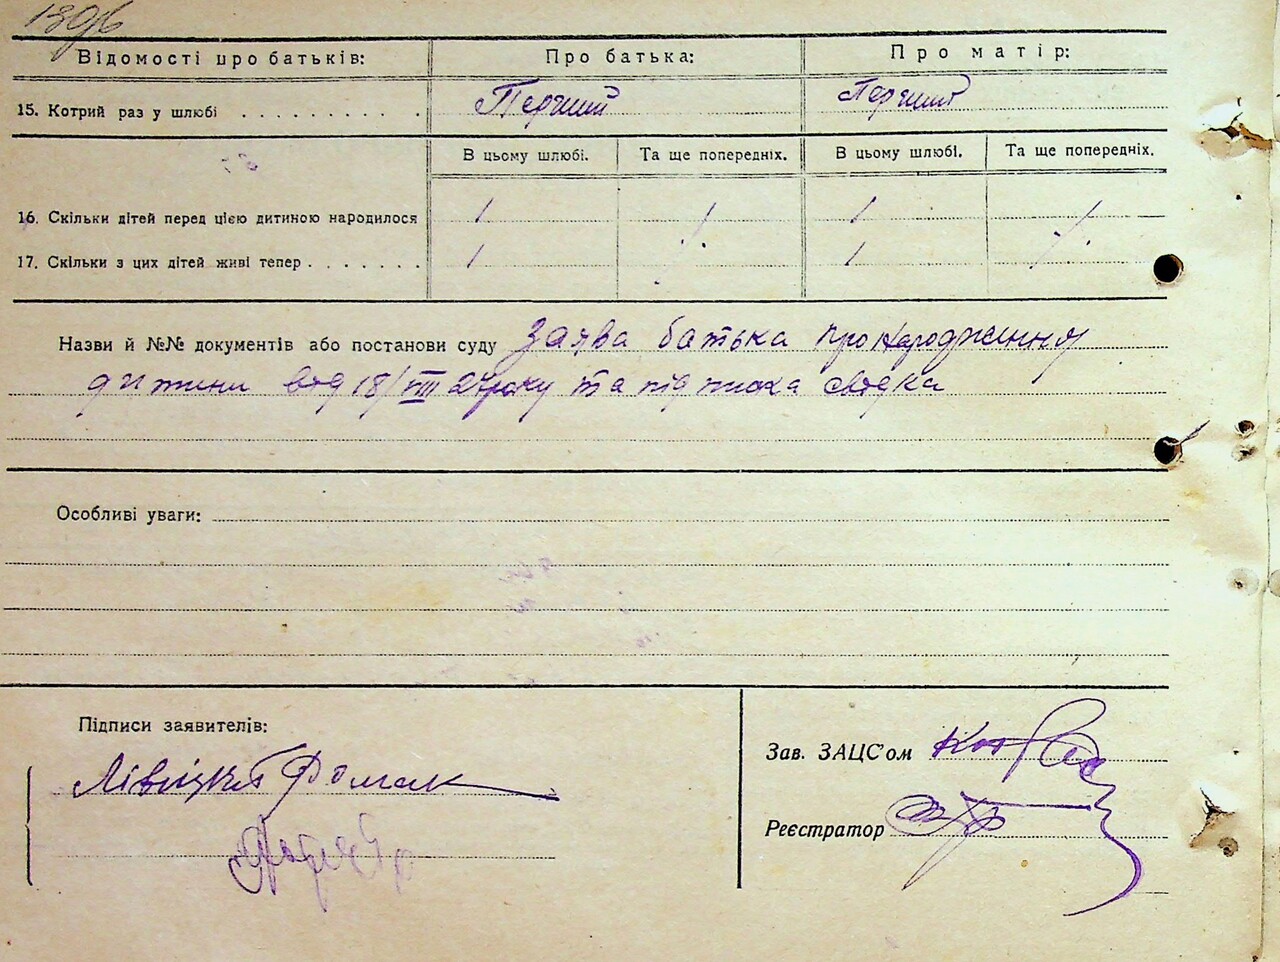 Відомості про батьків: Про батька: Про матір:
15. Котрий раз у шлюбі . . . . . . . . . . Перший Перший
В цьому шлюбі. Та ще попередніх. В цьому шлюбі. Та ще попередніх.
16. Скільки дітей перед цією дитиною народилося 1 / 1 /
17. Скільки з цих дітей живі тепер . . . . . . . 1 1
Назви й №№ документів або постанови суду Заява батька про народження
дитини від 18/VIII та підписка свідка
Особливі уваги:
Підписи заявителів:
Зав. ЗАЦС'ом
Лівіцкий
Реєстратор